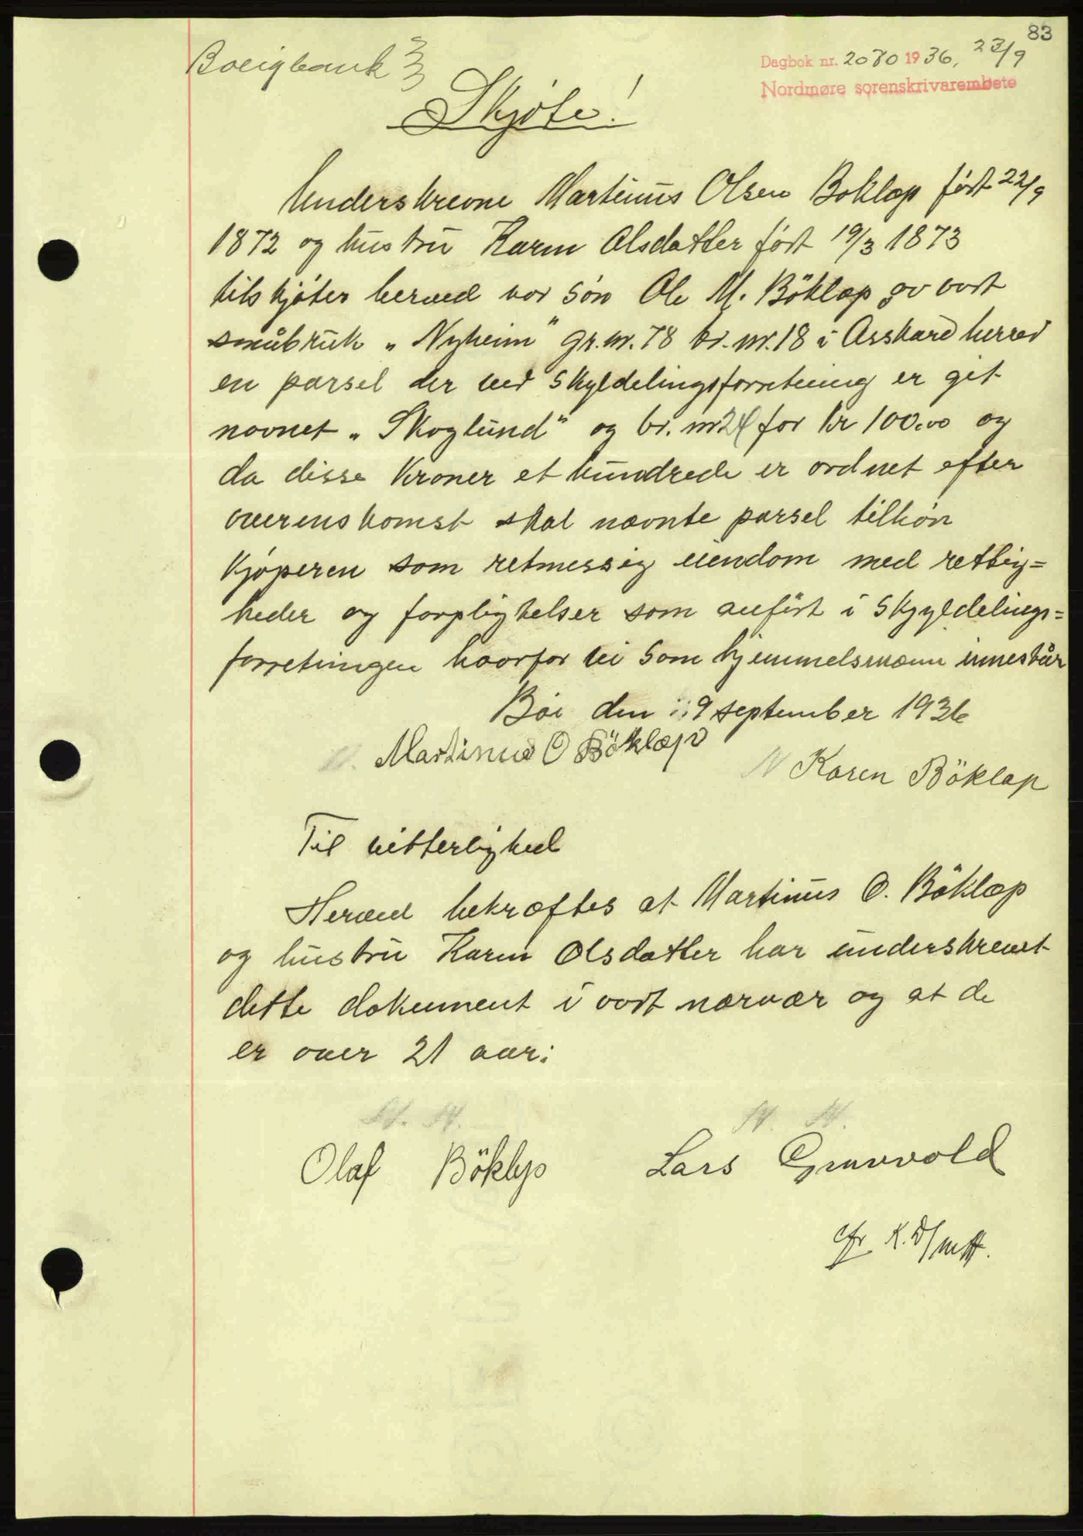 83
Dagbok nr. 2080 1936, 23/9
Nordmøre sorenskrivarembete
Boligbank
Skjøte!
Underskrevne Martinus Olsen Böklæp født 22/9
1872 og hustru Karen Olsdatter født 19/3 1873
tilskjøter herved vor søn Ole M. Böklæp av vort
småbruk „Nyheim" gr.nr. 78 br.nr. 18 i Asskard herred
en parsel der ved skyldelingsforretning er git
navnet „Skoglund" og br. nr 24 for kr 100.00 og
da disse kroner et hundrede er ordnet efter
overenskomst skal nævnte parsel tilhøre
kjøperen som retmessig eiendom med rettig=
heder og forpligtelser som anført i skyldelings=
forretningen hvorfor vi som hjemmelsmænn innestår
Bøe den 19 september 1936
Martinus O Böklæp
Karen Böklap
Til vitterlighed
Herved bekræftes at Martinus O. Böklæp
og hustru Karen Olsdatter har underskrevet
dette dokument i vort nærvær og at de
er over 21 aar:
Olaf Böklep Lars Grønvold